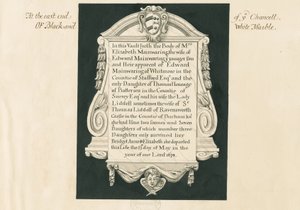 At the east end
of yͤ Chancell
Of Black and
White Marble.
In this Vault lyeth the Body of Mʳˢ
Elizabeth Mainwaring the wife of
Edward Mainwaring yͤ younger son
and Heir apparent of Edward
Mainwaring of Whitmore in the
Countie of Stafford Esqʳ and the
only Daughter of Thomas
of Battersea in the Countie of
Surrey Esqʳ and his wife the Lady
Liddell sometimes the wife of Sʳ
Thomas Liddell of Ravensworth
Castle in the Countie of Durham for
she had Issue two sonnes and Seven
Daughters of which number three
Daughters only survived her
Bridget Anne & Elizabeth she departed
this Life the day of May in the
year of our Lord